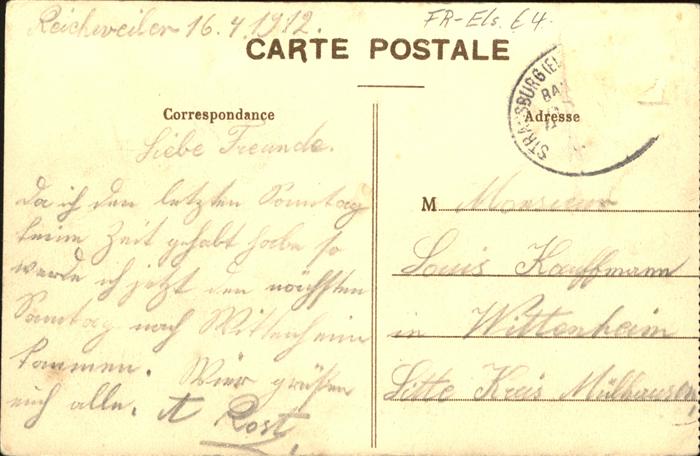 Reichweiler 16.4.1912.
FR-Els. 64.
CARTE POSTALE
STRASSBURG (EL
BA
Correspondance
Adresse
Liebe Freunde.
Da ich den letzten Sonntag
keine Zeit gehabt habe so
werde ich jetzt den nächsten
Sonntag nach Wittenheim
kommen. Wier grüßen
euch alle. A Rost
M Monsieur
Louis Kauffmann
in Wittenheim
Sitte Kreis Mülhausen